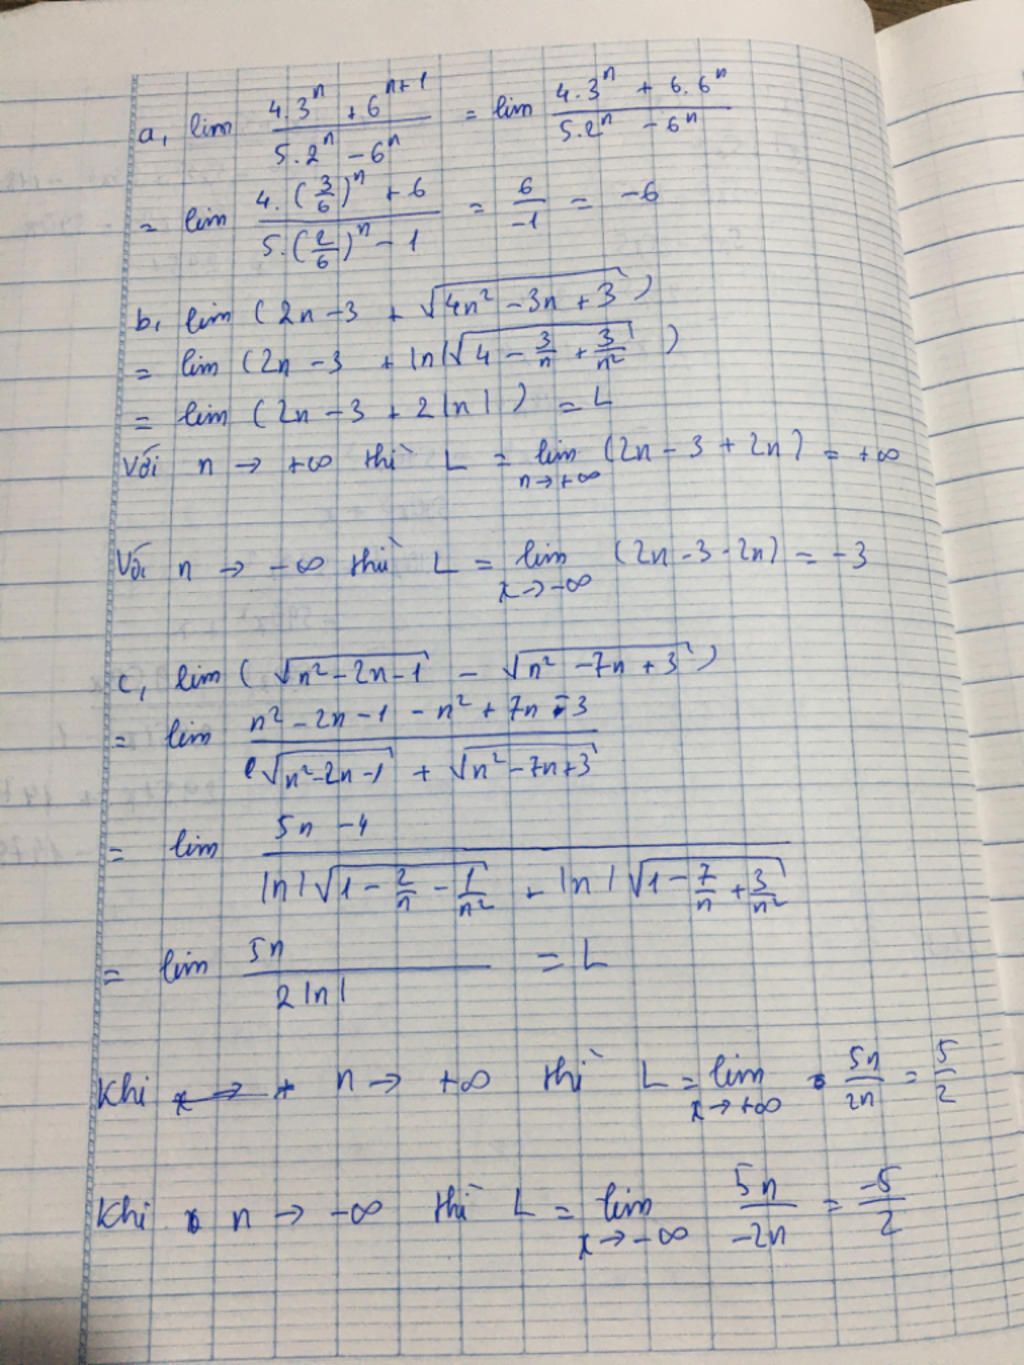 a, lim (4.3^n + 6^(n+1))/(5.2^n - 6^n) = lim (4.3^n + 6.6^n)/(5.2^n - 6^n)
= lim (4.(3/6)^n + 6)/(5.(2/6)^n - 1) = 6/-1 = -6
b, lim (2n - 3 + √(4n² - 3n + 3))
= lim (2n - 3 + |n|√(4 - 3/n + 3/n²))
= lim (2n - 3 + 2|n|) = L
Với n → +∞ thì L = lim n→+∞ (2n - 3 + 2n) = +∞
Với n → -∞ thì L = lim x→-∞ (2n - 3 - 2n) = -3
c, lim (√(n² - 2n - 1) - √(n² - 7n + 3))
= lim (n² - 2n - 1 - n² + 7n - 3)/(√(n² - 2n - 1) + √(n² - 7n + 3))
= lim (5n - 4)/(|n|√(1 - 2/n - 1/n²) - |n|√(1 - 7/n + 3/n²))
= lim 5n/(2|n|) = L
Khi n → +∞ thì L = lim x→+∞ 5n/2n = 5/2
Khi n → -∞ thì L = lim x→-∞ 5n/-2n = -5/2